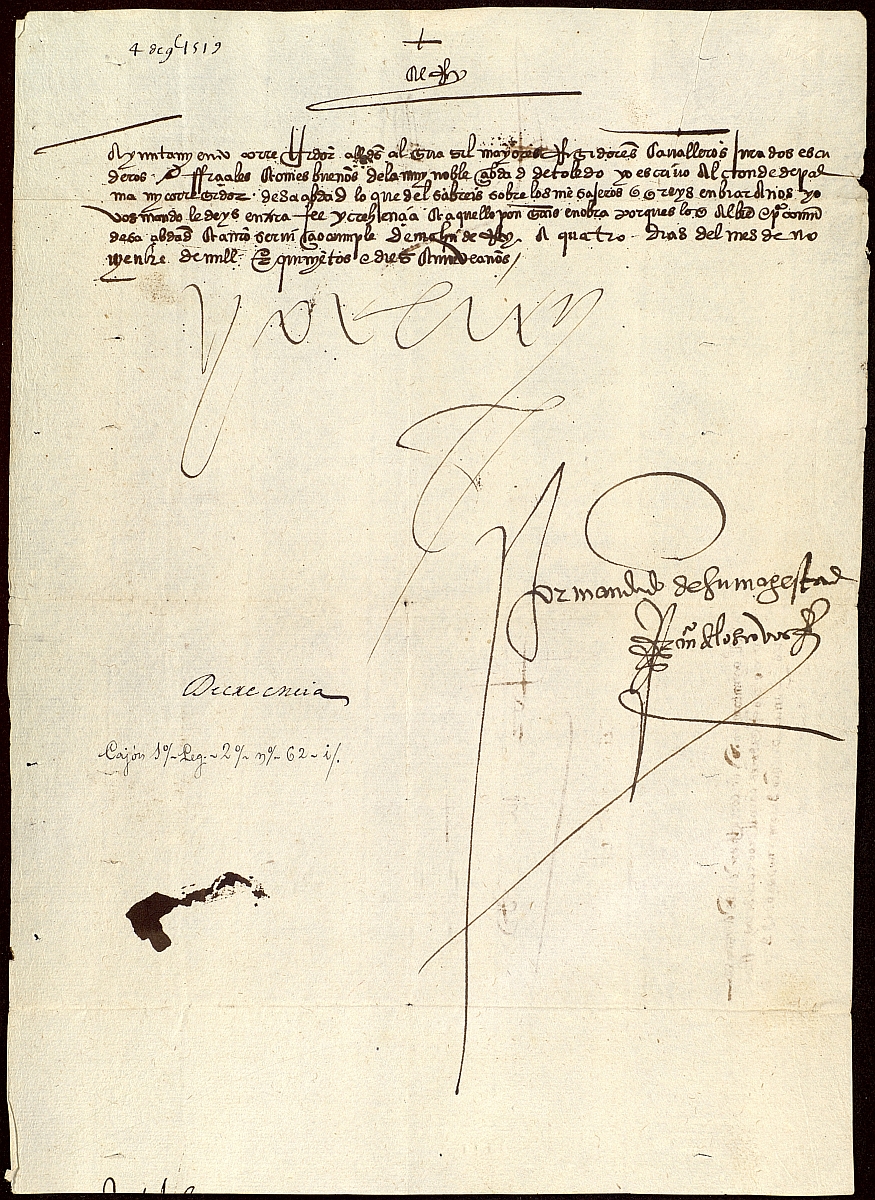 4 de 9e 1519
+
El Rey
Ayuntamiento corregidor alldes alguaziles mayores Regidores cavalleros jurados escu
deros oficiales e omes buenos de la muy noble cibdad de toledo yo escrivo al conde de pal
ma my corregidor desa cibdad lo que del sabreis sobre los mensajeros que quereys enbiar a nos yo
vos mando le deys entera fee y creencia e aquello pongais en obra porques lo que al bien e pro comun
desa cibdad e a nuestro servicio cumple de de Rey a quatro dias del mes de no
vyenbre de mill e quinientos e diez e nueve años
yo el rey
por mandado de su magestad
franco de los covos
Decxecncia
Cajon 1º Leg. 2º nº 62